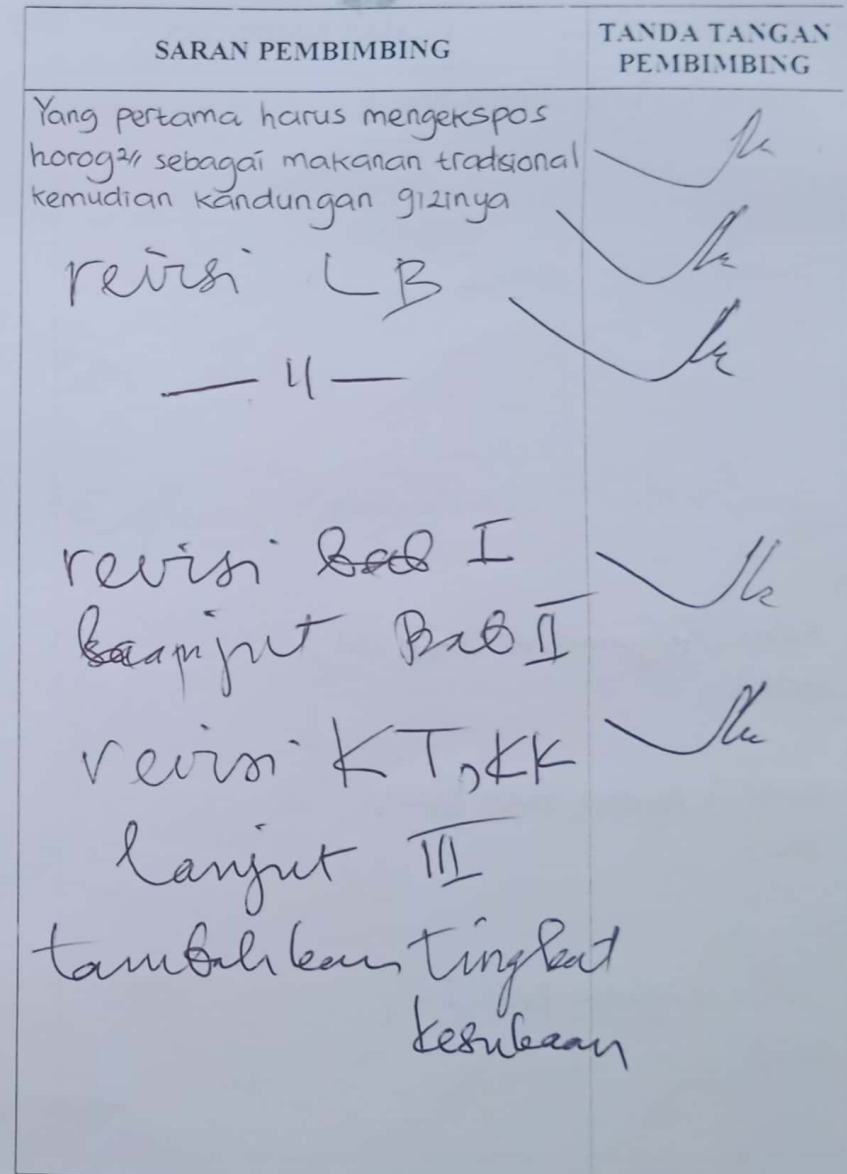 SARAN PEMBIMBING
TANDA TANGAN
PEMBIMBING
Yang pertama harus mengekspos
horog²// sebagai makanan tradisional
kemudian kandungan gizinya
revisi LB
— 11 —
revisi bab I
lanjut Bab II
revisi KT, KK
lanjut III
tambahkan tingkat
kesukaan